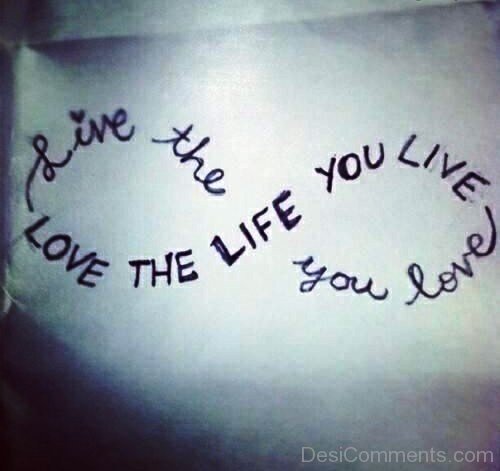 Live the
LOVE THE LIFE YOU LIVE
you love
DesiComments.com